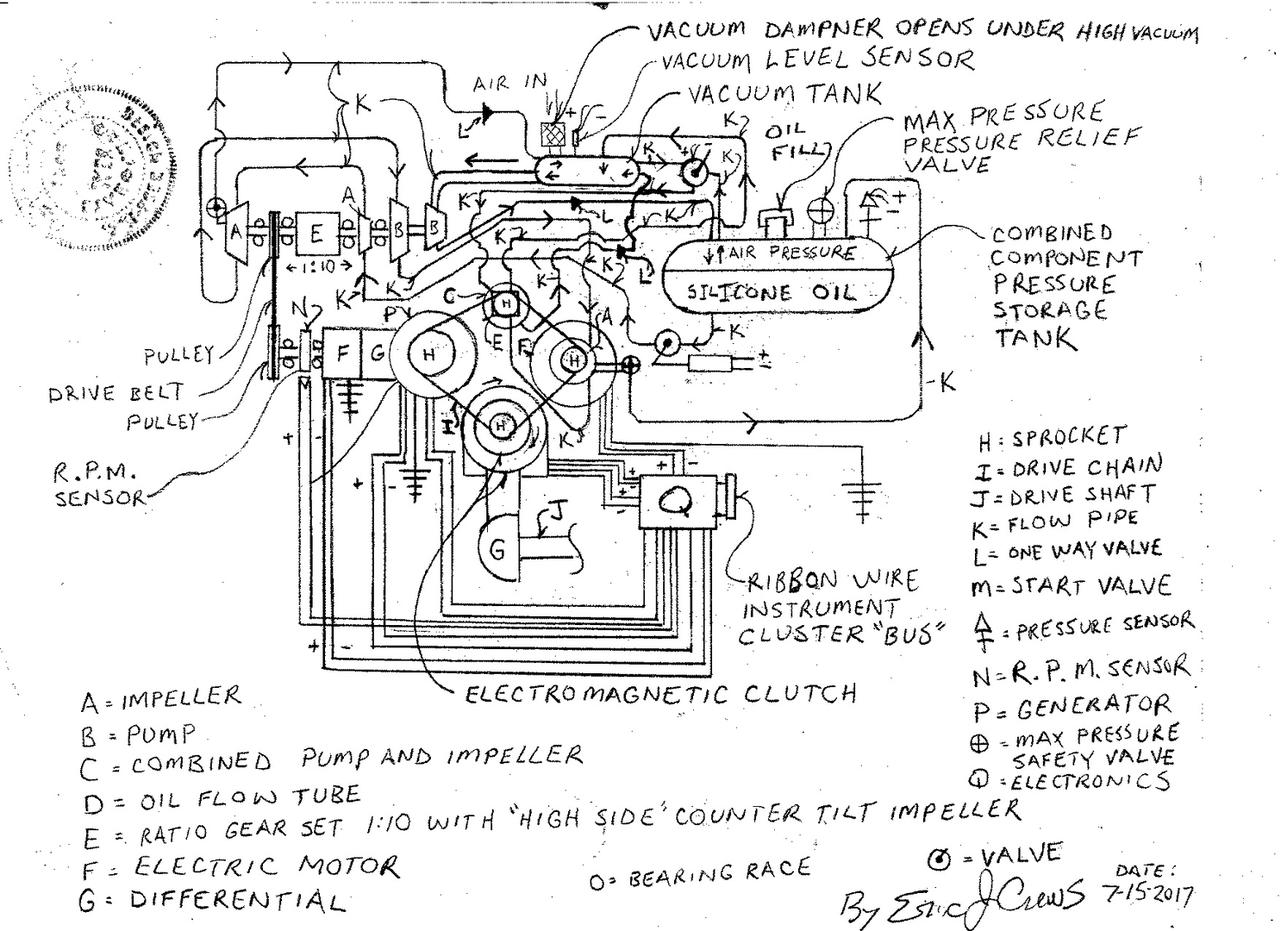 VACUUM DAMPNER OPENS UNDER HIGH VACUUM
VACUUM LEVEL SENSOR
AIR IN
VACUUM TANK
K
L
+ -
K
OIL
FILL
MAX PRESSURE
PRESSURE RELIEF
VALVE
K
+ -
K
K
A
K
L
K
+
-
A
E
B
B
1:10
AIR PRESSURE
SILICONE OIL
COMBINED
COMPONENT
PRESSURE
STORAGE
TANK
K
K
K
L
C
H
E
A
N
P
K
F
F
G
H
H
+
-
K
PULLEY
DRIVE BELT
PULLEY
I
H
K
+ -
R.P.M.
SENSOR
+ -
+ -
Q
+
-
+
-
J
G
RIBBON WIRE
INSTRUMENT
CLUSTER "BUS"
+ -
ELECTROMAGNETIC CLUTCH
H: SPROCKET
I = DRIVE CHAIN
J = DRIVE SHAFT
K = FLOW PIPE
L = ONE WAY VALVE
M = START VALVE
= PRESSURE SENSOR
N = R.P.M. SENSOR
P = GENERATOR
= MAX PRESSURE
SAFETY VALVE
Q = ELECTRONICS
A = IMPELLER
B = PUMP
C = COMBINED PUMP AND IMPELLER
D = OIL FLOW TUBE
E = RATIO GEAR SET 1:10 WITH "HIGH SIDE" COUNTER TILT IMPELLER
F = ELECTRIC MOTOR
G = DIFFERENTIAL
O = BEARING RACE
= VALVE
By Eric J Crews
DATE:
7-15-2017